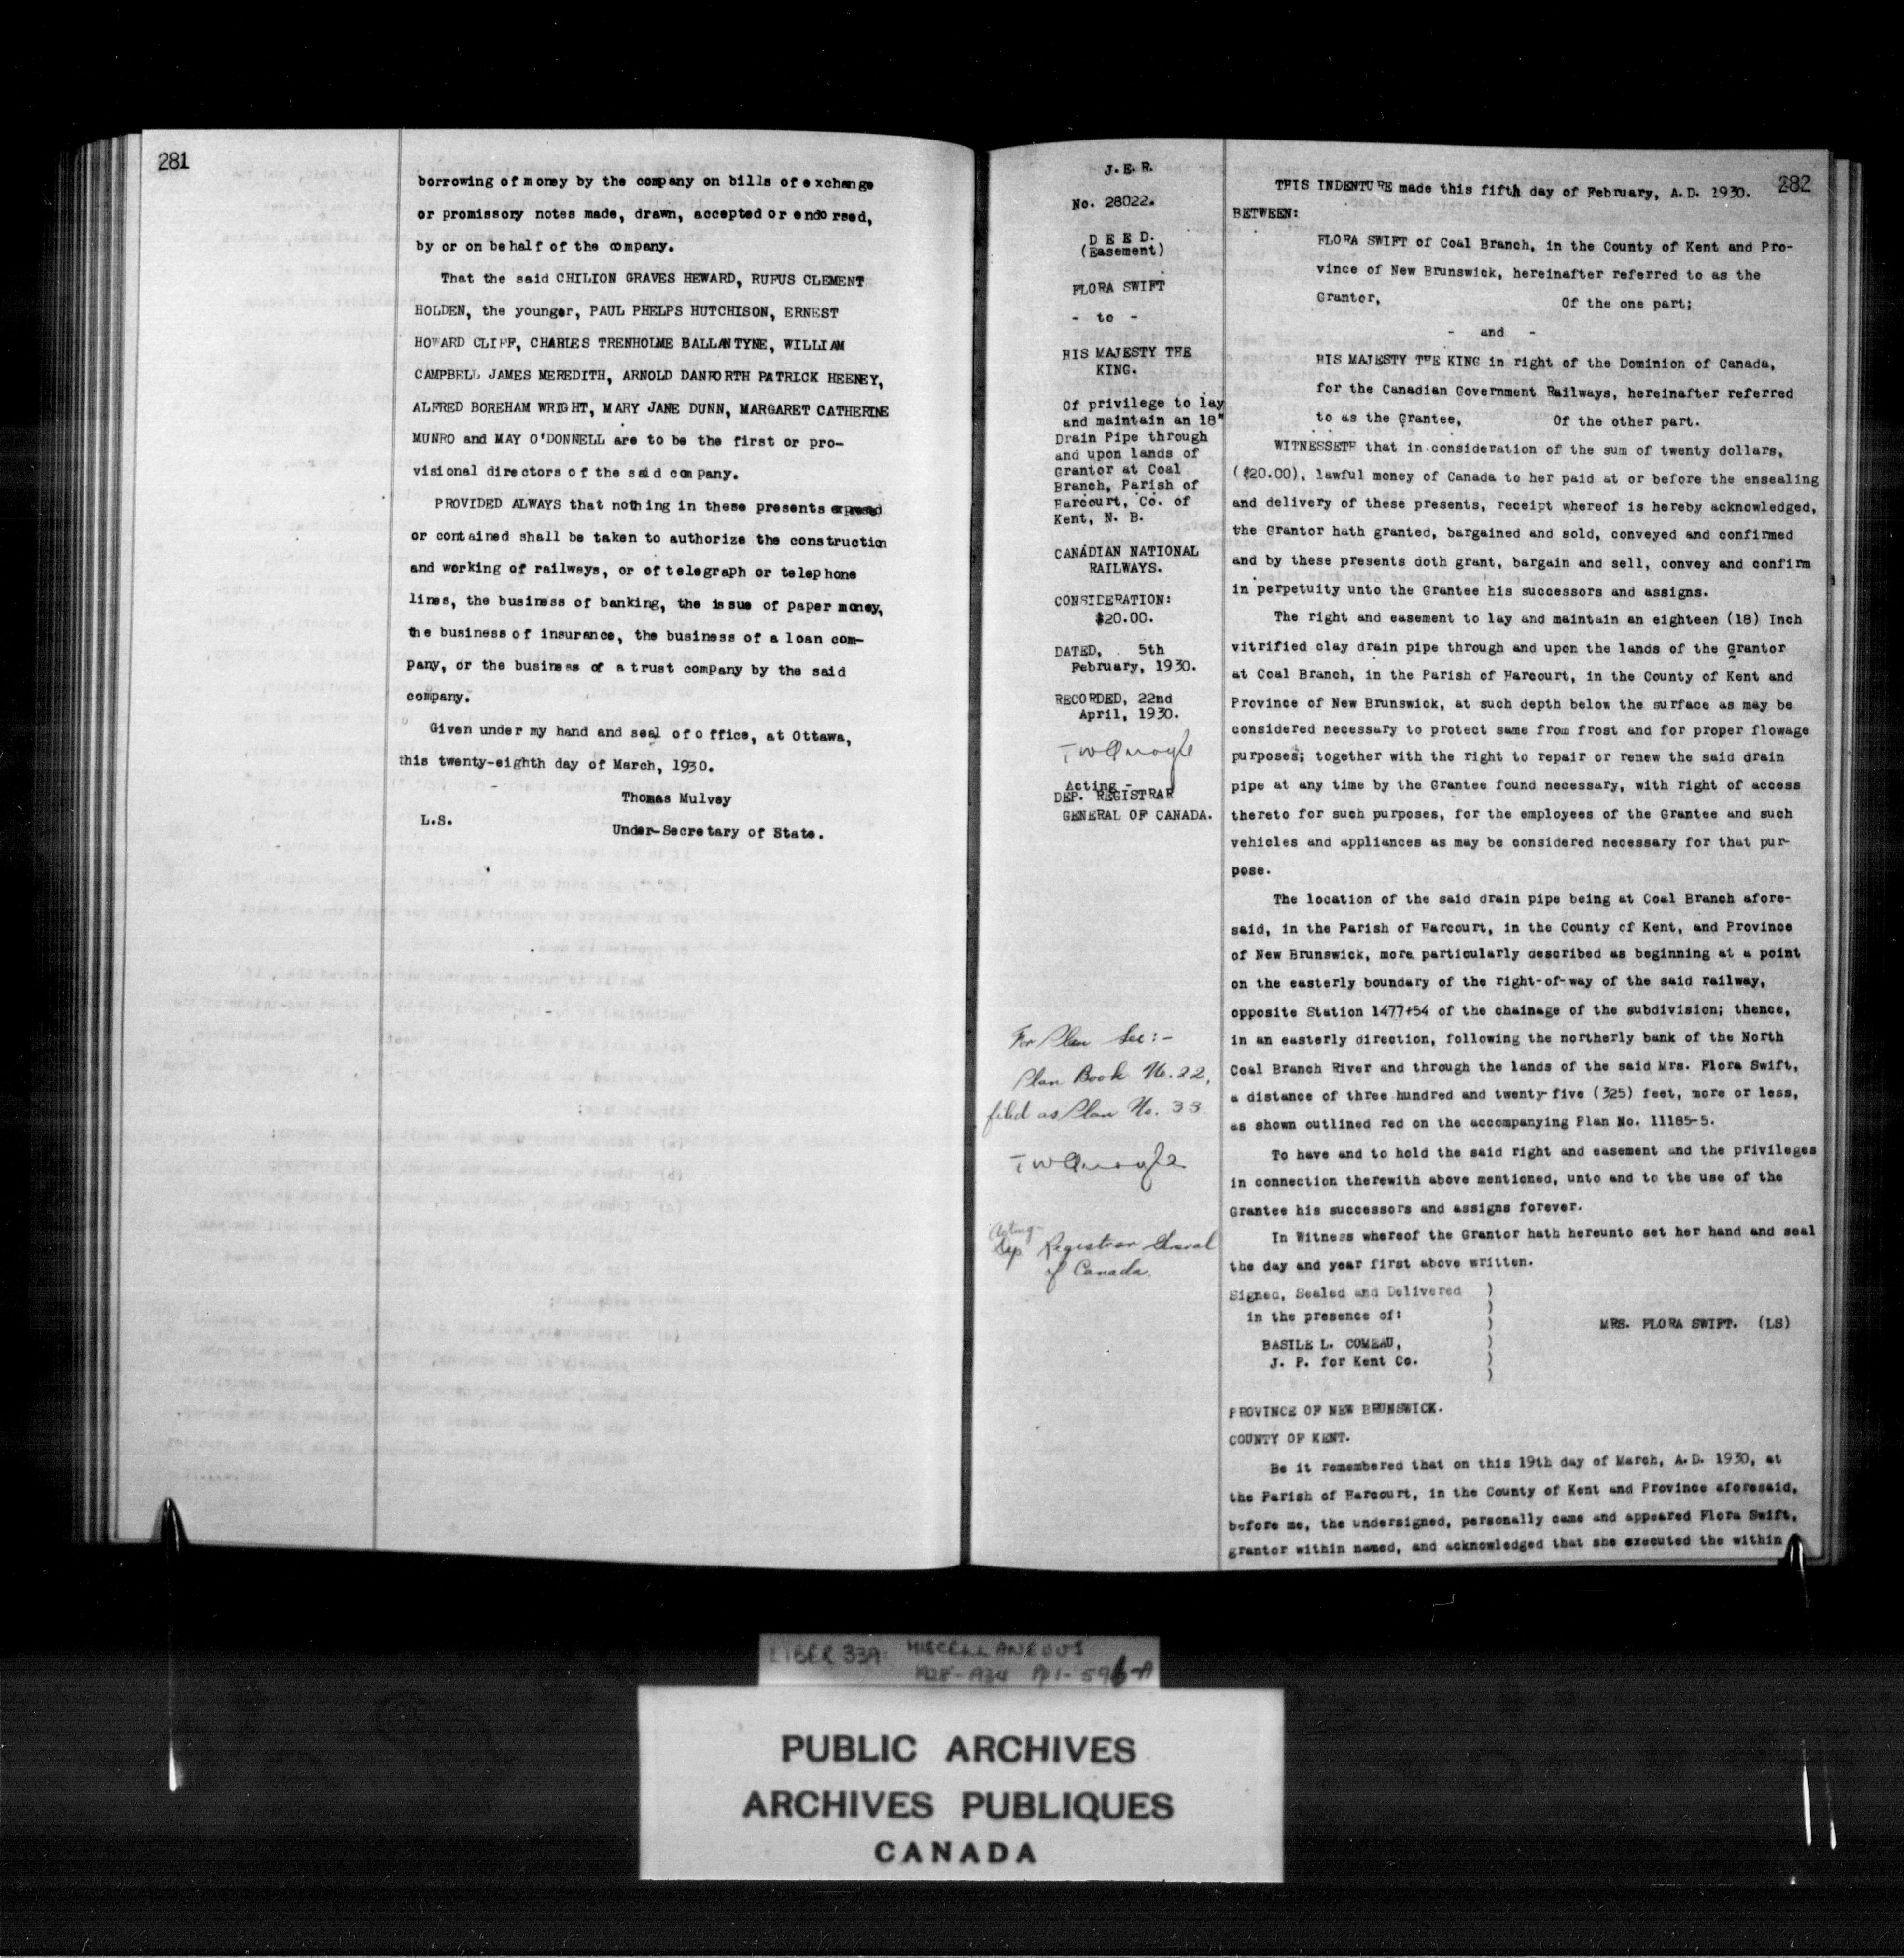 281
borrowing of money by the company on bills of exchange
or promissory notes made, drawn, accepted or endorsed,
by or on behalf of the company.
That the said CHILION GRAVES HEWARD, RUFUS CLEMENT
HOLDEN, the younger, PAUL PHELPS HUTCHISON, ERNEST
HOWARD CLIFF, CHARLES TRENHOLME BALLANTYNE, WILLIAM
CAMPBELL JAMES MEREDITH, ARNOLD DANFORTH PATRICK HEENEY,
ALFRED BOREHAM WRIGHT, MARY JANE DUNN, MARGARET CATHERINE
MUNRO and MAY O'DONNELL are to be the first or pro-
visional directors of the said company.
PROVIDED ALWAYS that nothing in these presents expressed
or contained shall be taken to authorize the construction
and working of railways, or of telegraph or telephone
lines, the business of banking, the issue of paper money,
the business of insurance, the business of a loan com-
pany, or the business of a trust company by the said
company.
Given under my hand and seal of office, at Ottawa,
this twenty-eighth day of March, 1930.
Thomas Mulvey
L.S.
Under-Secretary of State.
J.E.R.
No. 28022.
D E E D.
(Easement)
FLORA SWIFT
- to -
HIS MAJESTY THE
KING.
Of privilege to lay
and maintain an 18"
Drain Pipe through
and upon lands of
Grantor at Coal
Branch, Parish of
Harcourt, Co. of
Kent, N. B.
CANADIAN NATIONAL
RAILWAYS.
CONSIDERATION:
$20.00.
DATED, 5th
February, 1930.
RECORDED, 22nd
April, 1930.
Acting -
DEP. REGISTRAR
GENERAL OF CANADA.
For Plan See:-
Plan Book No. 22,
filed as Plan No. 33.
Acting-
Dep. Registrar General
of Canada.
282
THIS INDENTURE made this fifth day of February, A.D. 1930.
BETWEEN:
FLORA SWIFT of Coal Branch, in the County of Kent and Pro-
vince of New Brunswick, hereinafter referred to as the
Grantor, Of the one part;
- and -
HIS MAJESTY THE KING in right of the Dominion of Canada,
for the Canadian Government Railways, hereinafter referred
to as the Grantee, Of the other part.
WITNESSETH that in consideration of the sum of twenty dollars,
($20.00), lawful money of Canada to her paid at or before the ensealing
and delivery of these presents, receipt whereof is hereby acknowledged,
the Grantor hath granted, bargained and sold, conveyed and confirmed
and by these presents doth grant, bargain and sell, convey and confirm
in perpetuity unto the Grantee his successors and assigns.
The right and easement to lay and maintain an eighteen (18) Inch
vitrified clay drain pipe through and upon the lands of the Grantor
at Coal Branch, in the Parish of Harcourt, in the County of Kent and
Province of New Brunswick, at such depth below the surface as may be
considered necessary to protect same from frost and for proper flowage
purposes; together with the right to repair or renew the said drain
pipe at any time by the Grantee found necessary, with right of access
thereto for such purposes, for the employees of the Grantee and such
vehicles and appliances as may be considered necessary for that pur-
pose.
The location of the said drain pipe being at Coal Branch afore-
said, in the Parish of Harcourt, in the County of Kent, and Province
of New Brunswick, more particularly described as beginning at a point
on the easterly boundary of the right-of-way of the said railway,
opposite Station 1477+54 of the chainage of the subdivision; thence,
in an easterly direction, following the northerly bank of the North
Coal Branch River and through the lands of the said Mrs. Flora Swift,
a distance of three hundred and twenty-five (325) feet, more or less,
as shown outlined red on the accompanying Plan No. 11185-5.
To have and to hold the said right and easement and the privileges
in connection therewith above mentioned, unto and to the use of the
Grantee his successors and assigns forever.
In Witness whereof the Grantor hath hereunto set her hand and seal
the day and year first above written.
Signed, Sealed and Delivered )
in the presence of: )
MRS. FLORA SWIFT. (LS)
BASILE L. COMEAU, )
J. P. for Kent Co. )
PROVINCE OF NEW BRUNSWICK.
COUNTY OF KENT.
Be it remembered that on this 19th day of March, A.D. 1930, at
the Parish of Harcourt, in the County of Kent and Province aforesaid,
before me, the undersigned, personally came and appeared Flora Swift,
grantor within named, and acknowledged that she executed the within
LIBER 339: MISCELLANEOUS
1928-1934 Pp 1-596-A
PUBLIC ARCHIVES
ARCHIVES PUBLIQUES
CANADA